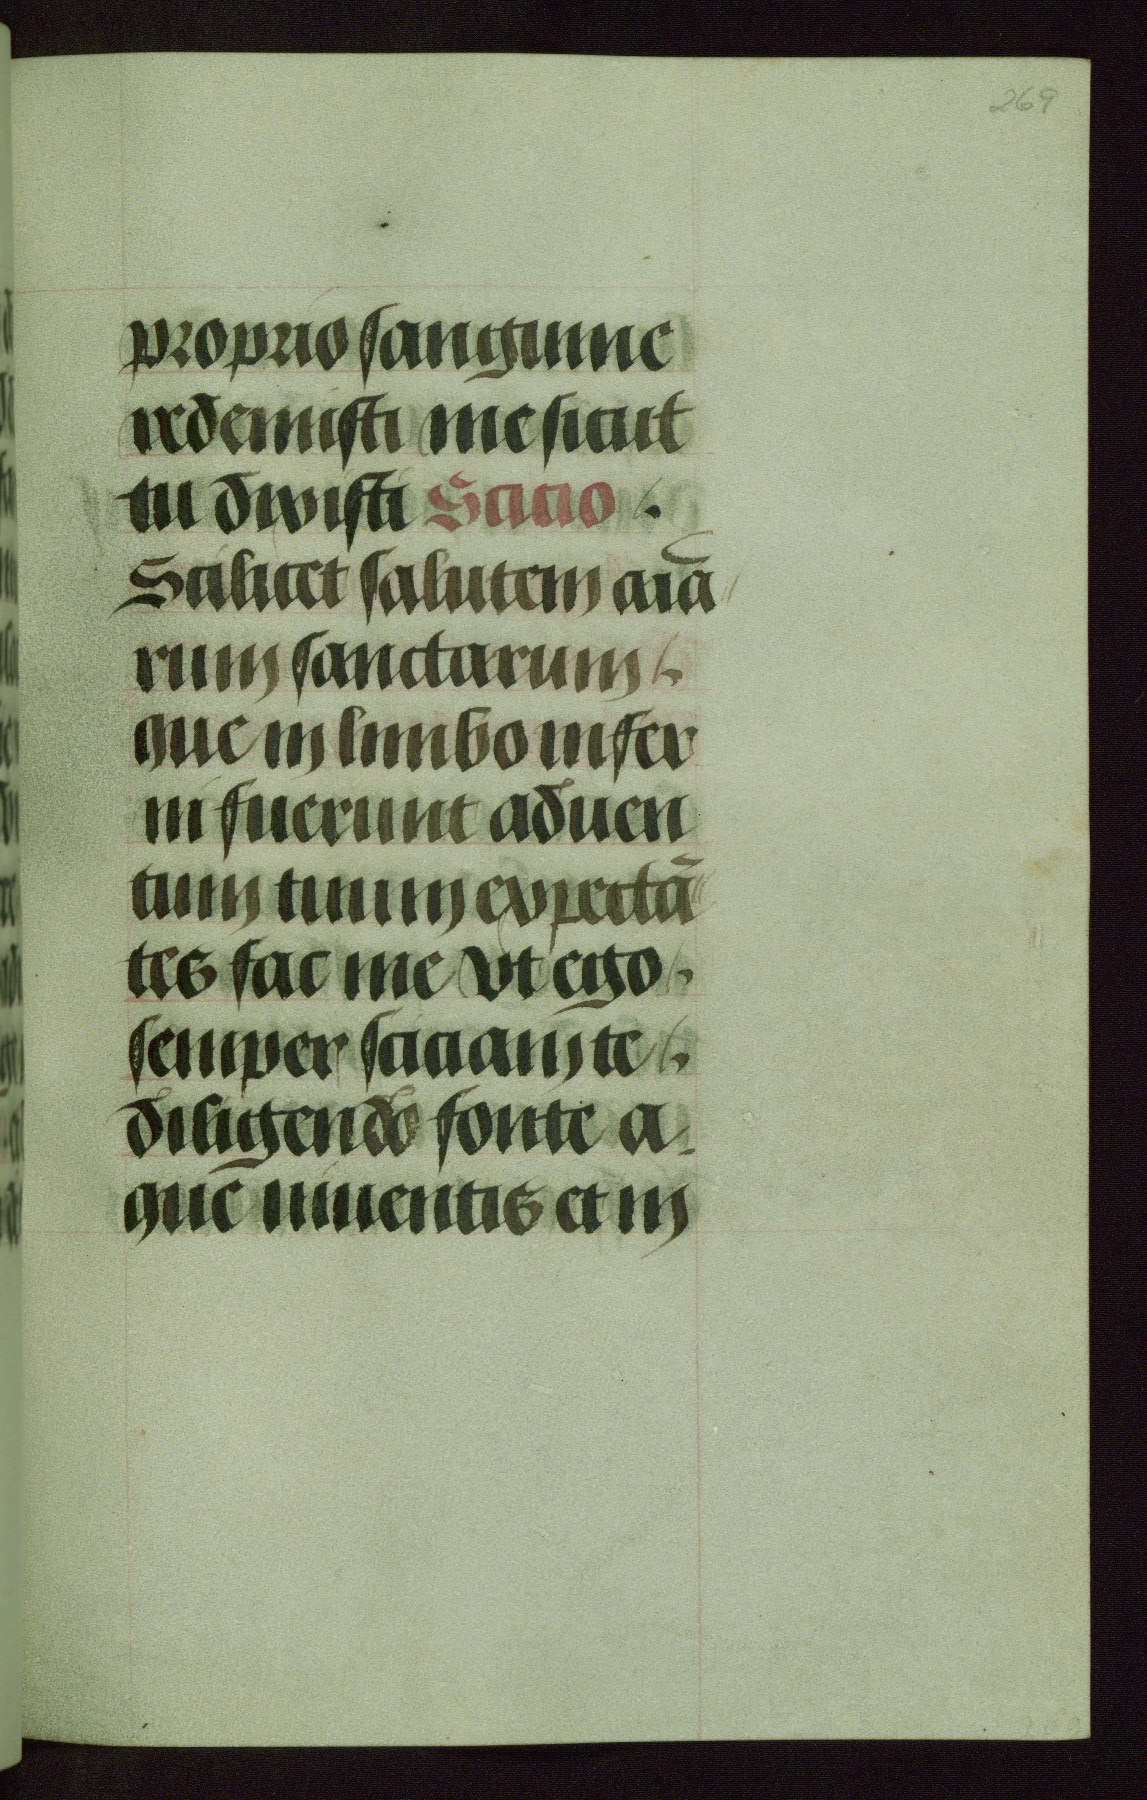 269
proprio sanguine
redemisti me sicut
tu dixisti Scicio
Scilicet salutem aīā
rum sanctarum
que in limbo infer
ni fuerunt aduen
tum tuum expectā
tes fac me vt ego
semper sciciam te
diligendo fonte a
que uiuentis et in